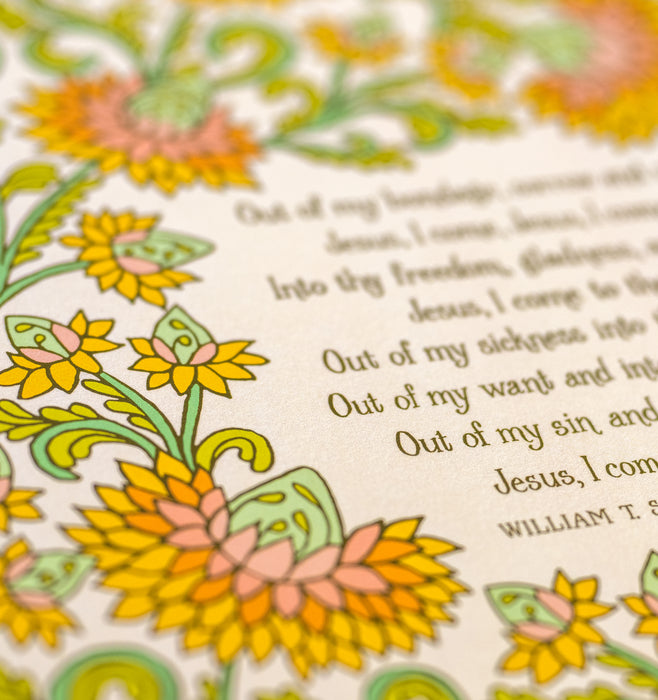 Out of my bondage, sorrow and
Jesus, I come, Jesus, I come
Into thy freedom, gladness,
Jesus, I come to
Out of my sickness into
Out of my want and into
Out of my sin and
Jesus, I com
WILLIAM T. S